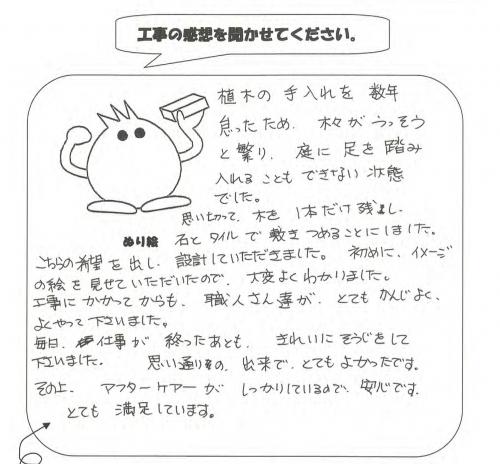 工事の感想を聞かせてください。
植木の 手入れを 数年
怠ったため、木々が うっそう
と繁り、庭に 足を 踏み
入れる ことも できない 状態
でした。
思い切って、木を 1本だけ 残し、
ぬり絵
石と タイル で 敷き つめることに しました。
こちらの希望 を 出し、設計していただきました。 初めに、イメージ
の絵 を 見せて いただいたので、 大変 よく わかりました。
工事に かかって からも、 職人さん達が、 とても かんじよく、
よくやって 下さいました。
毎日、仕事が 終ったあとも、 きれいに そうじを して
下さいました。 思い通りの、出来で、とても よかったです。
その上、 アフターケアーが しっかりしているので、安心です。
とても 満足しています。